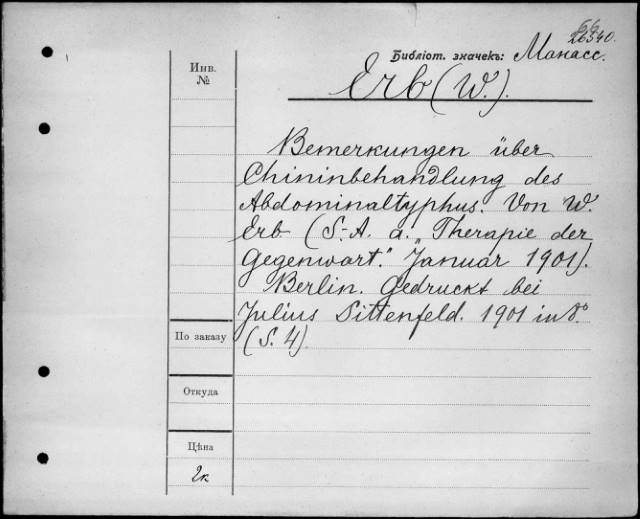 66
26340.
Библіот. значекъ: Манасс.
Инв.
№
Erb (W.).
Bemerkungen über
Chininbehandlung des
Abdominaltyphus. Von W.
Erb (S.-A. a. „Therapie der
Gegenwart." Januar 1901).
Berlin. Gedruckt bei
Julius Sittenfeld. 1901 in 8.°
(S. 4).
По заказу
Откуда
Цѣна
2к